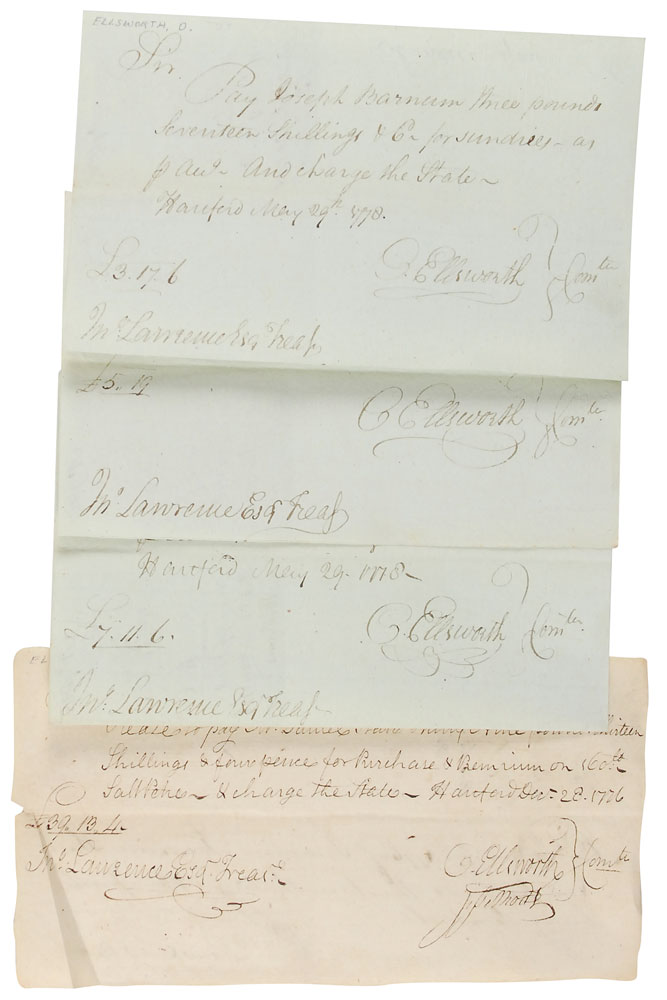 ELLSWORTH, O.
Sir
Pay Joseph Barnum three pounds
Seventeen Shillings & 6 for sundries as
And charge the State
Hartford May 29th 1778.
£3. 17. 6
O. Ellsworth } Comtee
Jno Lawrence Esqr Treasr
£5. 19
O Ellsworth } Comtee
Jno Lawrence Esqr Treasr
Hartford May 29. 1778
£7. 11. 6.
O. Ellsworth } Comtee
Jno Lawrence Esqr Treasr
Please to pay Mr Daniel thirty Nine pounds thirteen
Shillings & four pence for Purchase & Bemium on
Salt Petre & charge the State Hartford Decr 28. 1776
£39. 13. 4.
O. Ellsworth } Comtee
Jno Lawrence Esqr Treasr